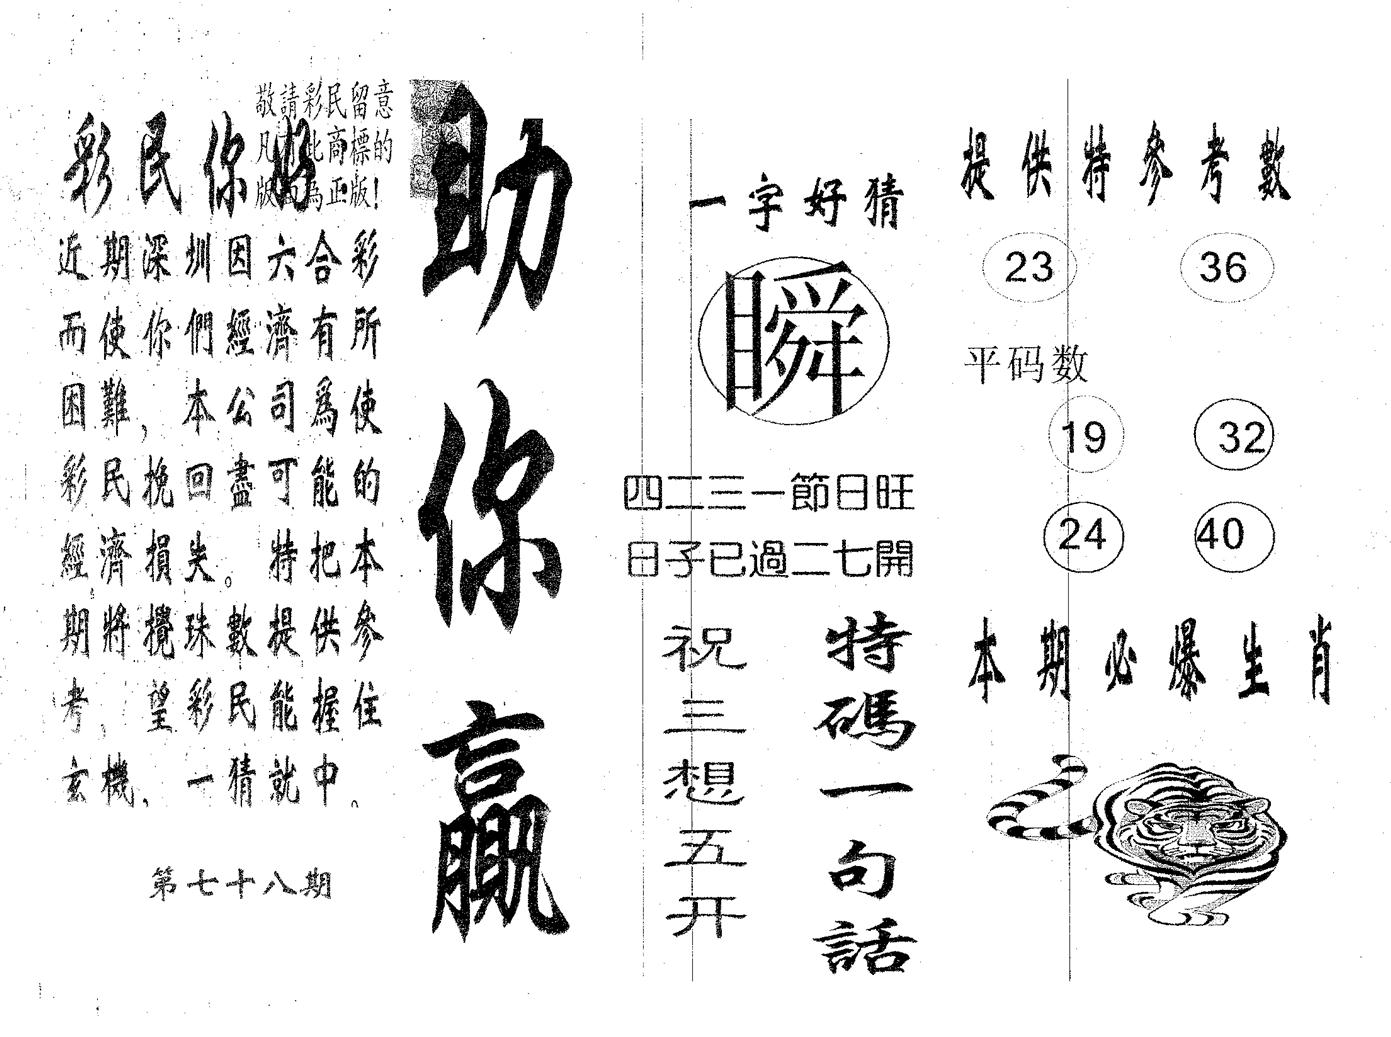 敬請彩民留意
凡有此商標的
版面為正版！
彩民你好
近期深圳因六合彩
而使你們經濟有所
困難，本公司爲使
彩民挽回盡可能的
經濟損失。特把本
期將攪珠數提供參
考，望彩民能握住
玄機，一猜就中。
第七十八期
助你贏
一字好猜
瞬
四二三一節日旺
日子已過二七開
特碼一句話
祝三想五开
提供特參考數
23 36
平码数
19 32
24 40
本期必爆生肖